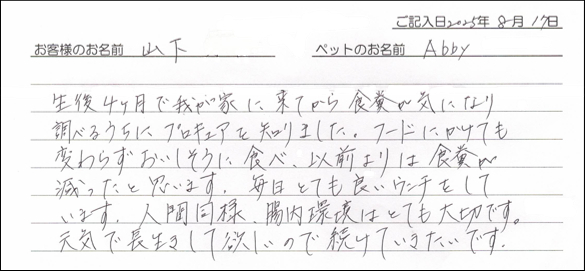 ご記入日2025年 8月 17日
お客様のお名前 山下 ペットのお名前 Abby
生後4ヶ月で我が家に来てから食糞が気になり
調べるうちにプロキュアを知りました。フードにかけても
変わらずおいしそうに食べ、以前よりは食糞が
減ったと思います。毎日とても良いウンチをして
います。人間同様、腸内環境はとても大切です。
元気で長生きして欲しいので続けていきたいです。